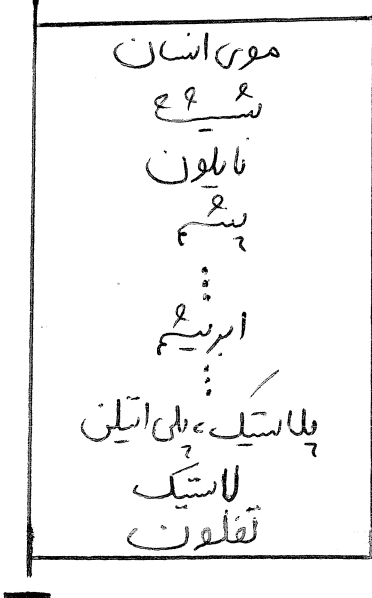 موی انسان
شیشه
نایلون
پشم
⋮
ابریشم
⋮
پلاستیک، پلی اتیلن
لاستیک
تفلون